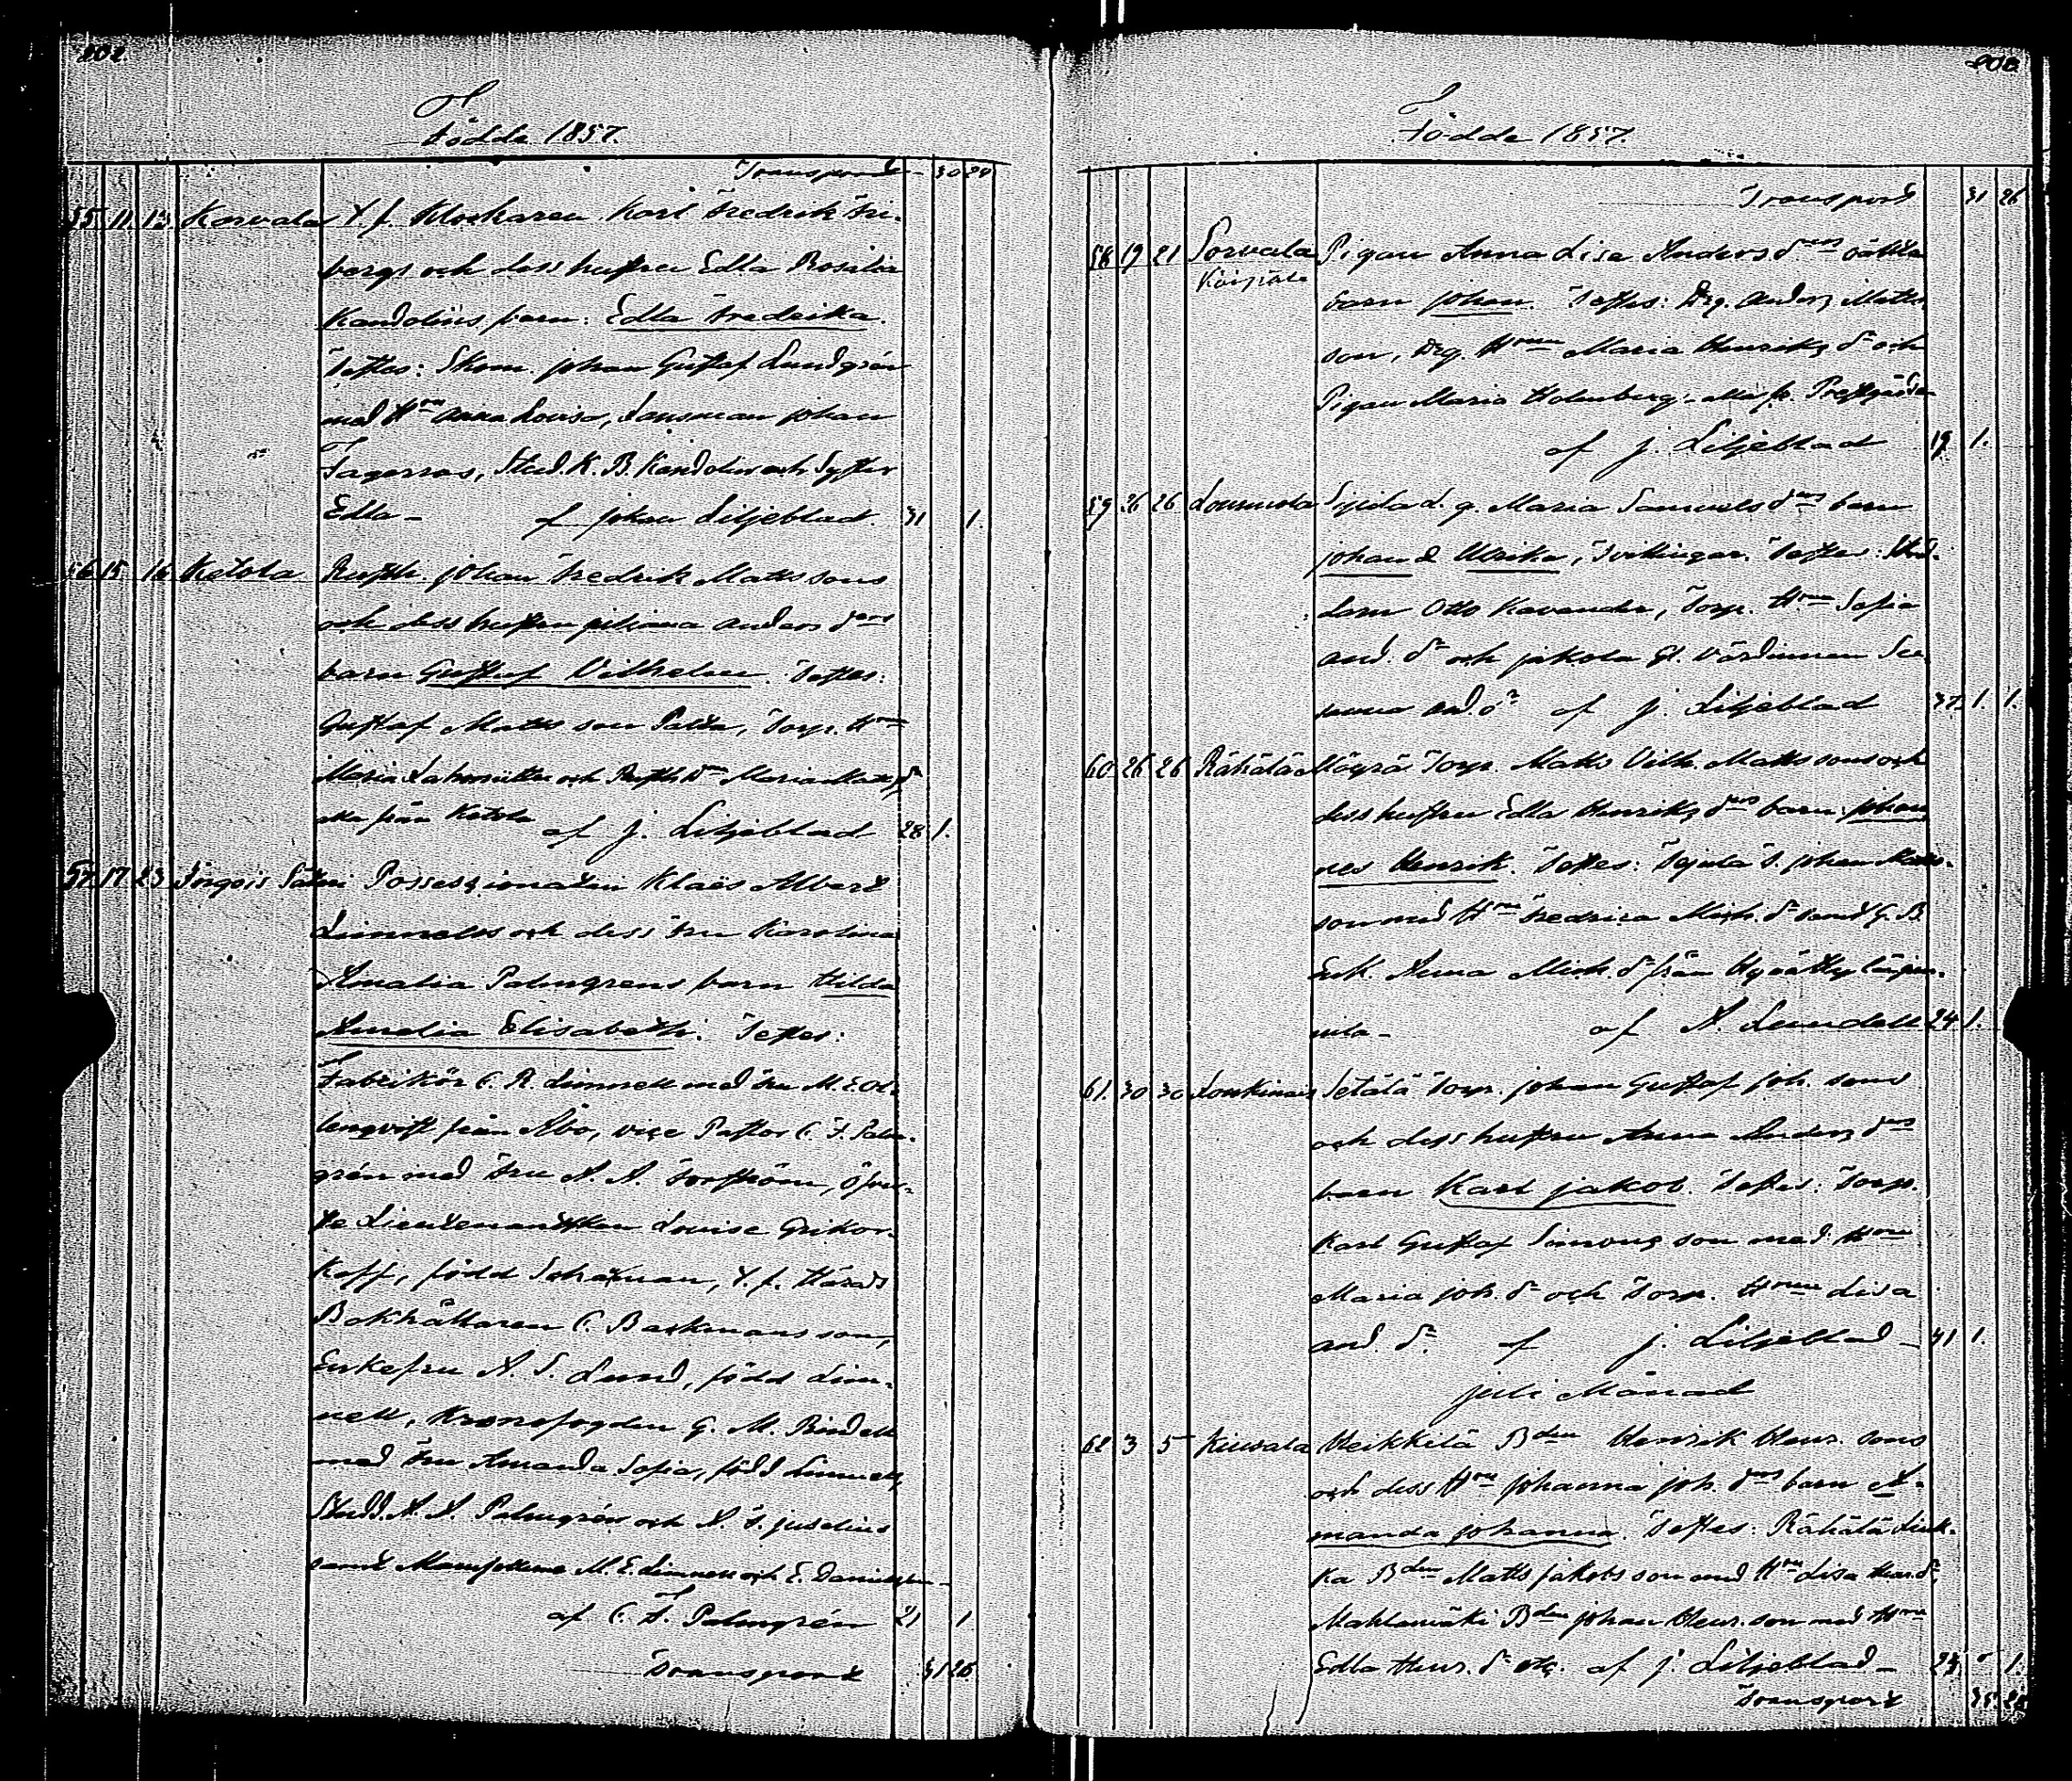 202.
Födde 1857.
Transport 30 24
55 11. 13. Korvala T. f. Klockaren Karl Fredrik Fri-
bergs och dess hustru Edla Rosalia
Kandolins barn: Edla Fredrika.
Testes: Skom. Johan Gustaf Lundgrén
med H:ru Anna Lovisa, Länsman Johan
Fagerroos, Stud. K. B. Kandolin och Syster
Edla – af Johan Liljeblad. 31 1.
56 15 16 Ketola Rusth. Johan Fredrik Matts sons
och dess hustru Juliana Anders d:rs
barn Gustaf Vilhelm. Testes:
Gustaf Matts son Palta, Torp. H:ru
Maria och Rusth. D:r Maria Matts d:r
alla från Ketola af J. Liljeblad 28 1.
57. 17 23 Säteri Possessionaten Klaës Albert
Linnells och dess Fru Karolina
Amalia Palmgrens barn Hilda
Amelia Elisabeth. Testes:
Fabrikör C. R. Linnell med Fru M.
från Åbo, vice Pastor C. F. Palm-
grén med Fru A. A. Öfver-
ste Lieutenantskan Louise Gripor-
koff, född Schatman, T. f. Härads
Bokhållaren C. Backmansson,
Enkefru A. S. Lund, född Lin-
nell, Kronofogden G. M. Rindell
med Fru Amanda Sofia, född Linnell,
Studd. A. A. Palmgrén och A. F. Juselius
samt Mamsellerne M. E. Linnell och E. Danielsson –
af C. F. Palmgrén 21 1
Transport 31 26.
203
Födde 1857.
Transport 31 26
58 19 21 Sorvala Pigan Anna Lisa Anders d:rs oäkta
Köipälä
barn Johan. Testes: Drg. Anders Matts
son, Drg. H:run Maria Henriks d:r och
Pigan Maria Holmberg – alla fr. Prestgården
af J. Liljeblad 19. 1.
59 26 26 Lounnola d. g. Maria Samuels d:rs barn
Johan & Ulrika, Tvillingar. Testes: Skräd-
daren Otto Kavander, Torp. H:run Sofia
And. d:r och Jakola Gl. Värdinnan Su-
sanna And. d:r af J. Liljeblad 37. 1. 1.
60 26 26 Rähälä Mögrä Torp. Matts Vilh. Matts sons och
dess hustru Edla Henriks d:rs barn Johan-
nes Henrik. Testes: T. Johan Matts-
son med H:ru Fredrica Mich. d:r samt G. B.
Enk. Anna Mich. d:r från
mila – af A. Lundell 24 1.
61. 30 30 Loukinais Setälä Torp. Johan Gustaf Joh. sons
och dess hustru Anna Anders d:rs
barn Karl Jakob. Testes: Torp.
Karl Gustaf Simons son med H:ru
Maria Joh. d:r och Torp. H:run Lisa
And. d:r. af J. Liljeblad – 41 1.
Juli Månad
62 3 5 Kiuvala Heikkilä B:den Henrik Henr. sons
och dess H:ru Johanna Joh. d:rs barn A-
manda Johanna. Testes: Rähälä Link-
ka B:den Matts Jakobs son med H:ru Lisa Henr. d:r,
Mahlamäki B:den Johan Henr. son med H:ru
Edla Henr. d:r etc. af J. Liljeblad – 1.
Transport 35